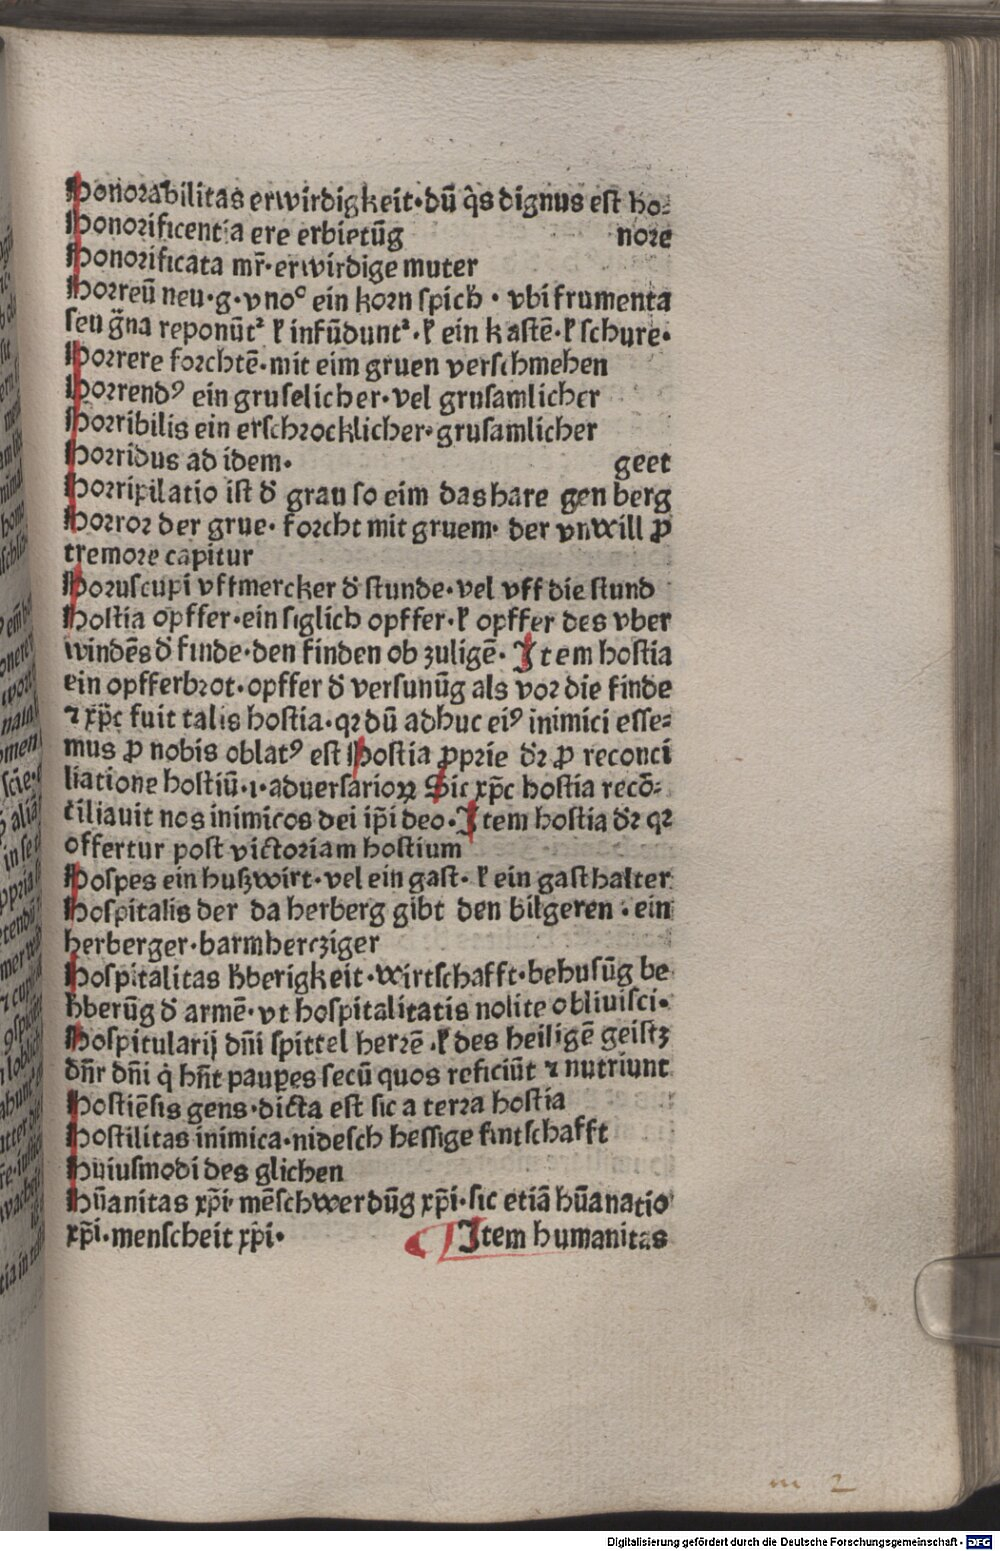 Honorabilitas erwirdigkeit·dū q̄s dignus est ho⸗
Honorificentia ere erbietūg nore
Honorificata mr̄·erwirdige muter
Horreū neu·g·vnoᶜ ein korn spich̄·vbi frumenta
seu gͣna reponūtᷣ ł infūduntᷣ·ł ein kastē·ł schure·
Horrere forchtē·mit eim gruen verschmehen
Horrendꝰ ein gruselicher·vel grusamlicher
Horribilis ein erschrocklicher·grusamlicher
Horridus ad idem· geet
Horripilatio ist d̄ grau so eim das hare gen berg
Horror der grue·forcht mit gruem·der vnwill ꝓ
tremore capitur
Horuscupi vffmercker d̄ stunde·vel vff die stund
Hostia opffer·ein siglich opffer·ł opffer des vber
windēs d̄ finde·den finden ob zuligē·Item hostia
ein opfferbrot·opffer d̄ versunūg als vor die finde
⁊ xp̄c fuit talis hostia·qꝛ dū adhuc eiꝰ inimici esse⸗
mus ꝓ nobis oblatꝰ est Hostia ꝓprie dꝛ̄ ꝓ reconci
liatione hostiū·i·aduersarioꝝ Sic xp̄c hostia recō⸗
ciliauit nos inimicos dei ip̄i deo·Item hostia dꝛ̄ qꝛ
offertur post victoriam hostium
Hospes ein hußwirt·vel ein gast·ł ein gasthalter
Hospitalis der da herberg gibt den bilgeren·ein
herberger·barmhercziger
Hospitalitas h̄berigkeit·wirtschafft·behusūg be
h̄berūg d̄ armē·vt hospitalitatis nolite obliuisci·
Hospitularij dn̄i spittel herrē·ł des heiligē geistz
dn̄r dn̄i q̇ hn̄t pauꝑes secū quos reficiūt ⁊ nutriunt
Hostiēsis gens·dicta est sic a terra hostia
Hostilitas inimica·nidesch hessige fintschafft
Huiusmodi des glichen
Hūanitas xp̄i·mēschwerdūg xp̄i·sic etiā hūanatio
xp̄i·menscheit xp̄i· Item humanitas
m 2
Digitalisierung gefördert durch die Deutsche Forschungsgemeinschaft - DFG